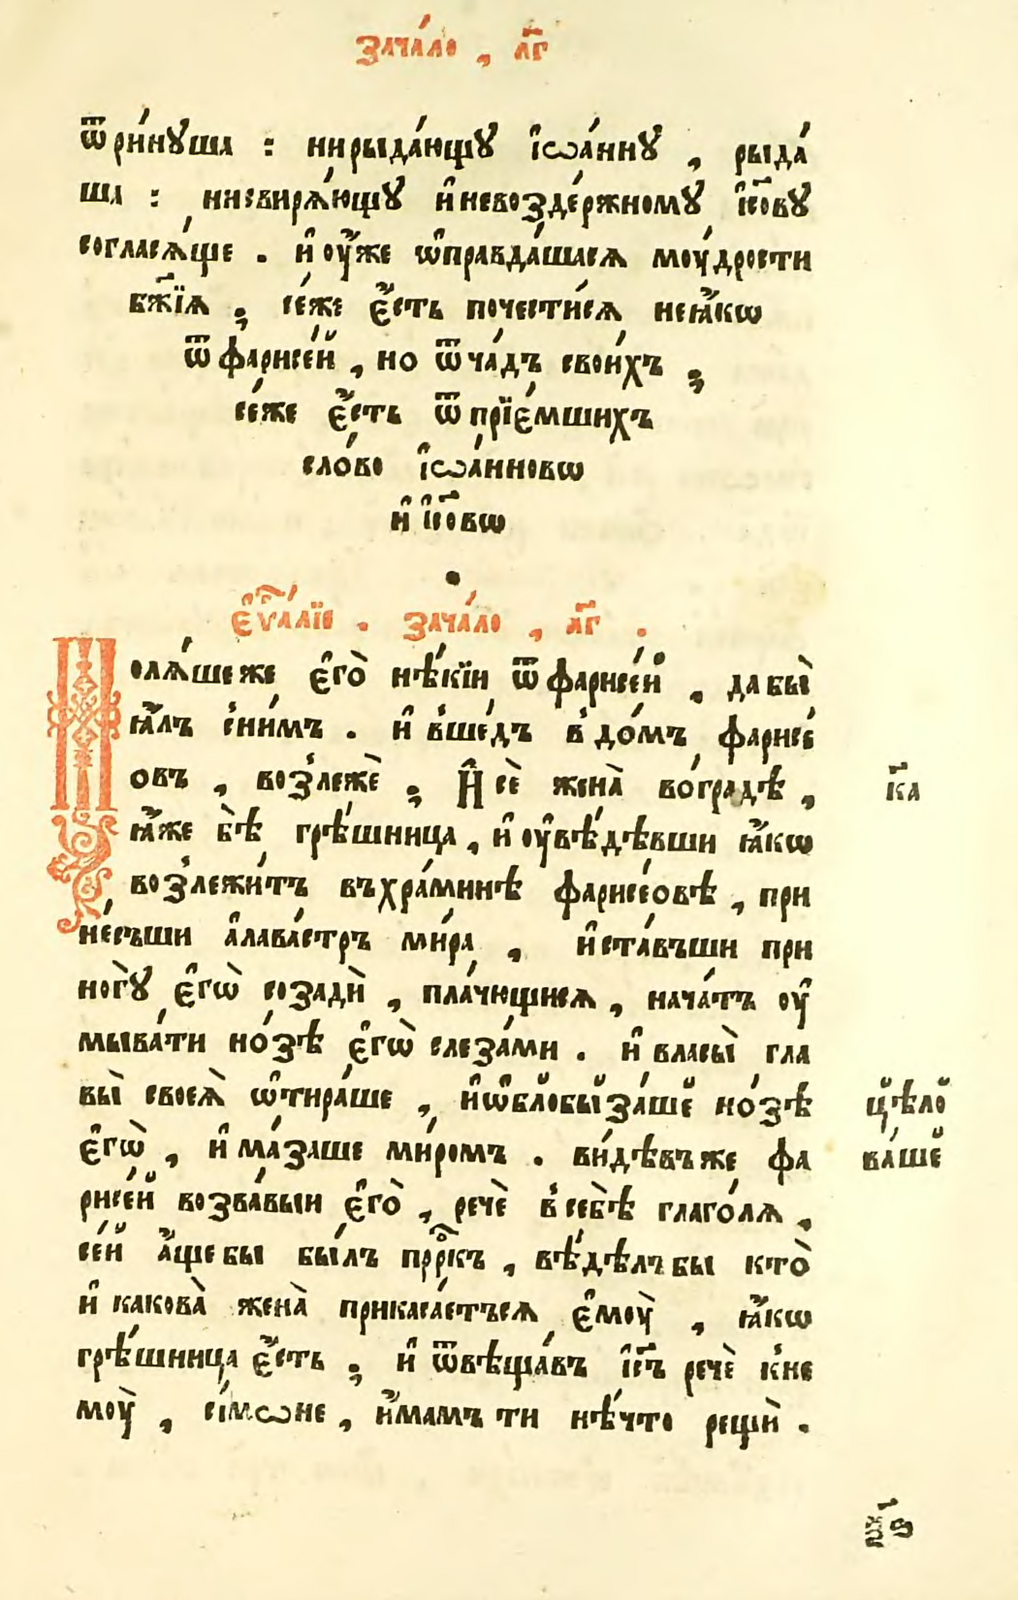 зача́ло , л҃г
ѿри́нꙋша : нирыда́ющꙋ і҆ѡа́ннꙋ , рыда́
ша : нисвирѧ́ющꙋ и҆невоздержномꙋ̀ і҆с҃овꙋ
согласѧ́ще . и҆ оу҆́же ѡ҆правда́шасѧ моу́дрости
бж҃їѧ , се́же є҆́сть почести́сѧ неꙗ҆́кѡ
ѿ фарисе́й , но ѿ ча́дъ свои́хъ ,
се́же є҆́сть ѿ прїе́мшихъ
сло́во і҆ѡа́нновѡ
и҆ і҆с҃овѡ
є҆ѵⷢ҇лїе . зача́ло , л҃г .
Молѧ́шеже є҆го̀ нѣ́кїи ѿ фарисе́й , да бы̀
ꙗ҆́лъ сни́мъ . и҆ вше́дъ в до́мъ фарисе́
овъ , возлежѐ , И҆ сѐ жена̀ во гра́дѣ ,
ꙗ҆́же бѣ̀ грѣ́шница , и҆ оу҆вѣ́дѣвши ꙗ҆́кѡ
возлежи́тъ въ хра́минѣ фарисе́овѣ , при
не́съши а҆лава́стръ ми́ра , и҆ ста́въши при
но́гꙋ є҆гѡ̀ созадѝ , пла́чющисѧ , нача́тъ оу҆
мыва́ти но́зѣ є҆гѡ̀ слеза́ми . и҆ власы̀ гла
вы̀ своеѧ̀ ѡ҆тира́ше , и҆ѡ҆блобыза́ше но́зѣ
є҆гѡ̀ , и҆ ма́заше ми́ромъ . ви́дѣвъже фа
рисе́й возва́выи є҆го̀ , речѐ всебѣ̀ глаго́лѧ ,
се́й а҆́щебы бы́лъ пррⷪ҇къ , вѣ́дѣлъбы кто̀
и҆ какова̀ жена̀ прикаса́етъсѧ є҆моу̀ , ꙗ҆́кѡ
грѣ́шница є҆́сть , и҆ ѿвѣща́въ і҆с҃ъ речѐ кне
моу̀ , сі́мѡне , и҆́мамъ ти нѣ́что рещѝ .
к҃а
цѣло
ва́ше